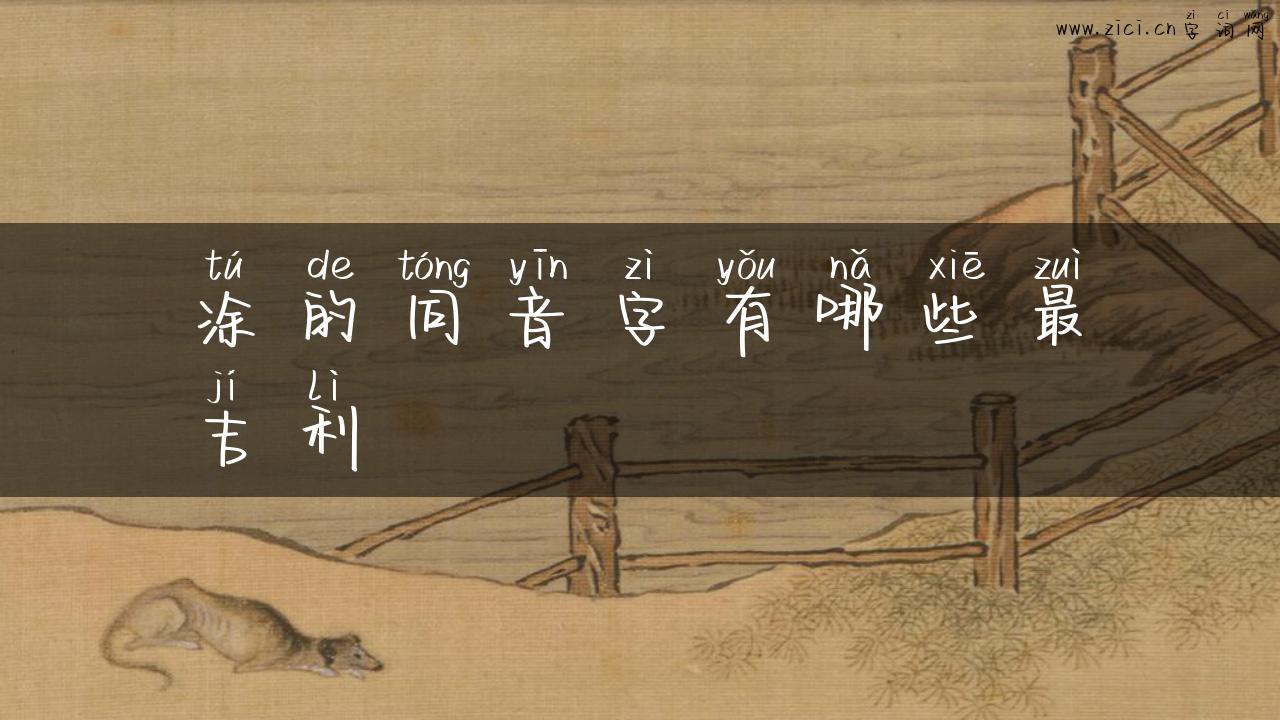 zì cí wǎng
www.zici.cn字词网
tú de tóng yīn zì yǒu nǎ xiē zuì
涂的同音字有哪些最
jí lì
吉利